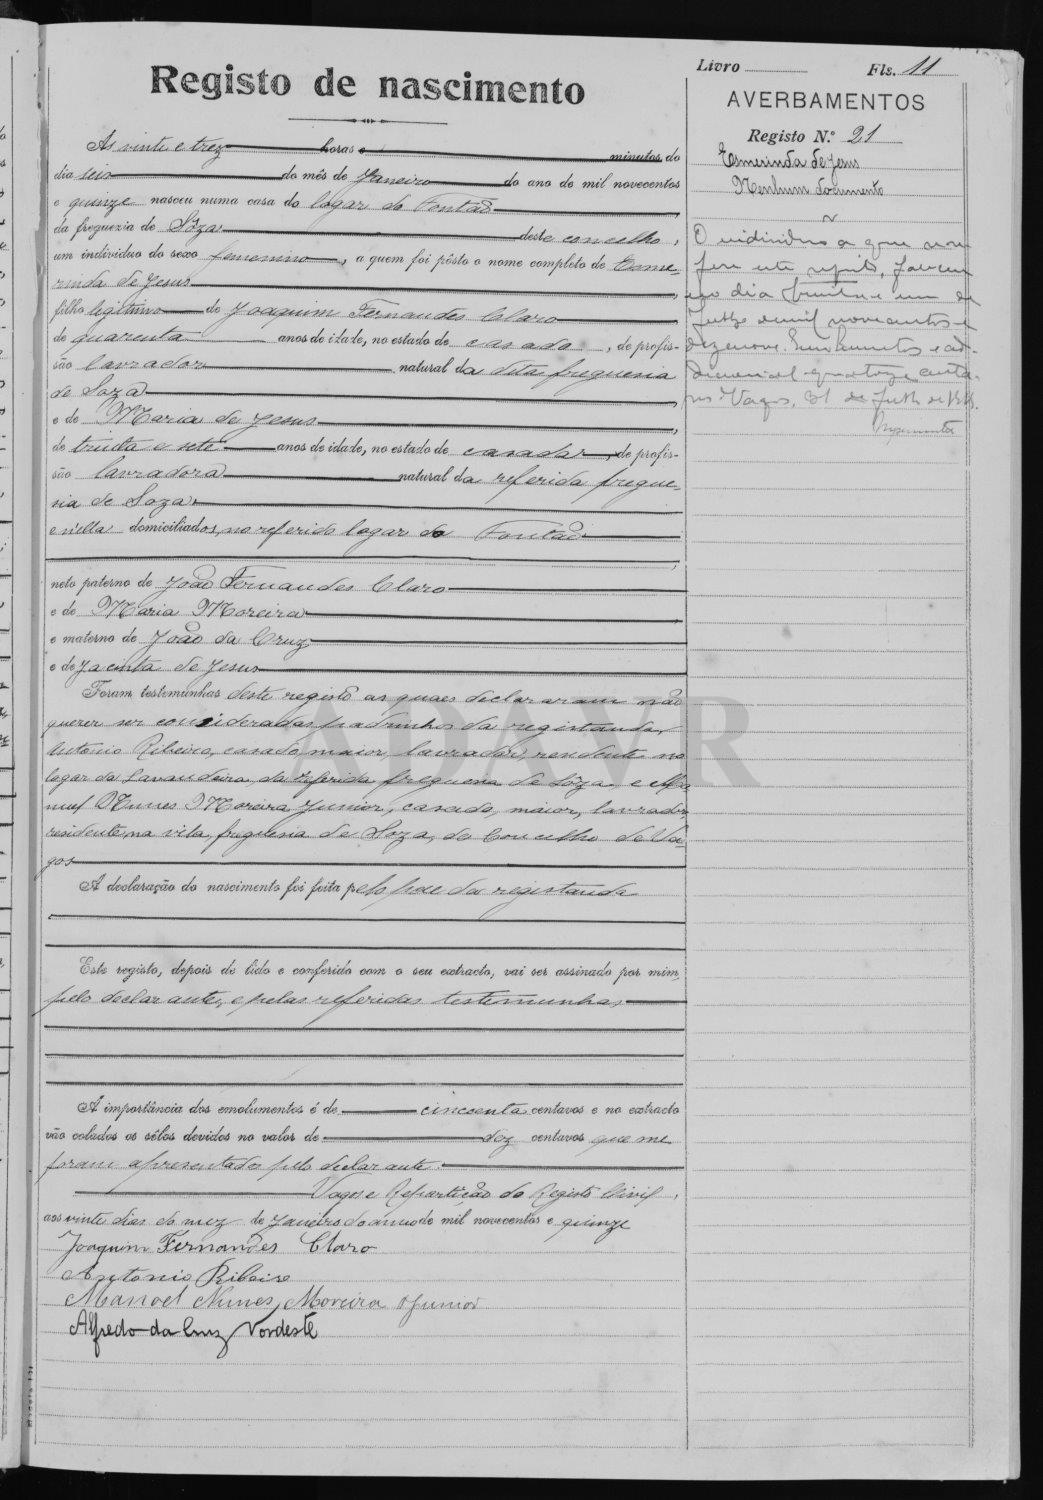 Livro Fls. 11
Registo de nascimento
AVERBAMENTOS
Registo N.º 21
Esmerinda de Jesus
Nenhum documento
As vinte e trez horas e minutos do
dia seis do mês de Janeiro do ano de mil novecentos
e quinze nasceu numa casa do logar do Fontão,
da freguezia de Sôza deste concelho,
um individuo do sexo femenino, a quem foi pôsto o nome completo de Esme-
rinda de Jesus,
filho legitimo de Joaquim Fernandes Claro
de quarenta anos de idade, no estado de casado, de profis-
são lavrador natural da dita freguesia
de Soza,
e de Maria de Jesus,
de trinta e sete anos de idade, no estado de casada, de profis-
são lavradora natural da referida fregue-
sia de Soza
e n'ella domiciliados, no referido logar do Fontão
,
neto paterno de João Fernandes Claro
e de Maria Moreira,
e materno de João da Cruz
e de Jacinta de Jesus
Foram testemunhas deste registo as quaes declararam não
querer ser consideradas padrinhos da registanda,
Antonio Ribeiro, casado, maior, lavrador, residente no
logar da Lavandeira, da referida freguesia de Sôza, e Ma-
nuel Nunes Moreira Junior, casado, maior, lavrador,
residente, na vila, freguesia de Soza, do Concelho de Va-
gos
A declaração do nascimento foi feita pelo pae da registanda
Este registo, depois de lido e conferido com o seu extracto, vai ser assinado por mim,
pelo declarante, e pelas referidas testemunhas
A importância dos emolumentos é de cincoenta centavos e no extracto
vão colados os sêlos devidos no valor de dez centavos que me
foram apresentados pelo declarante.
Vagos e Repartição do Registo Civil,
aos vinte dias do mez de Janeiro do anno de mil novecentos e quinze
Joaquim Fernandes Claro
Antonio Ribeiro
Manoel Nunes Moreira Junior
Alfredo da Cruz Nordeste
O individuo a que se re-
fere este registo, faleceu
no dia trinta e um de
Julho de mil novecentos e
dezenove. Emolumentos e ad-
dicional quatorze centa-
vos. Vagos, 31 de Julho de 1919.
ADAVR